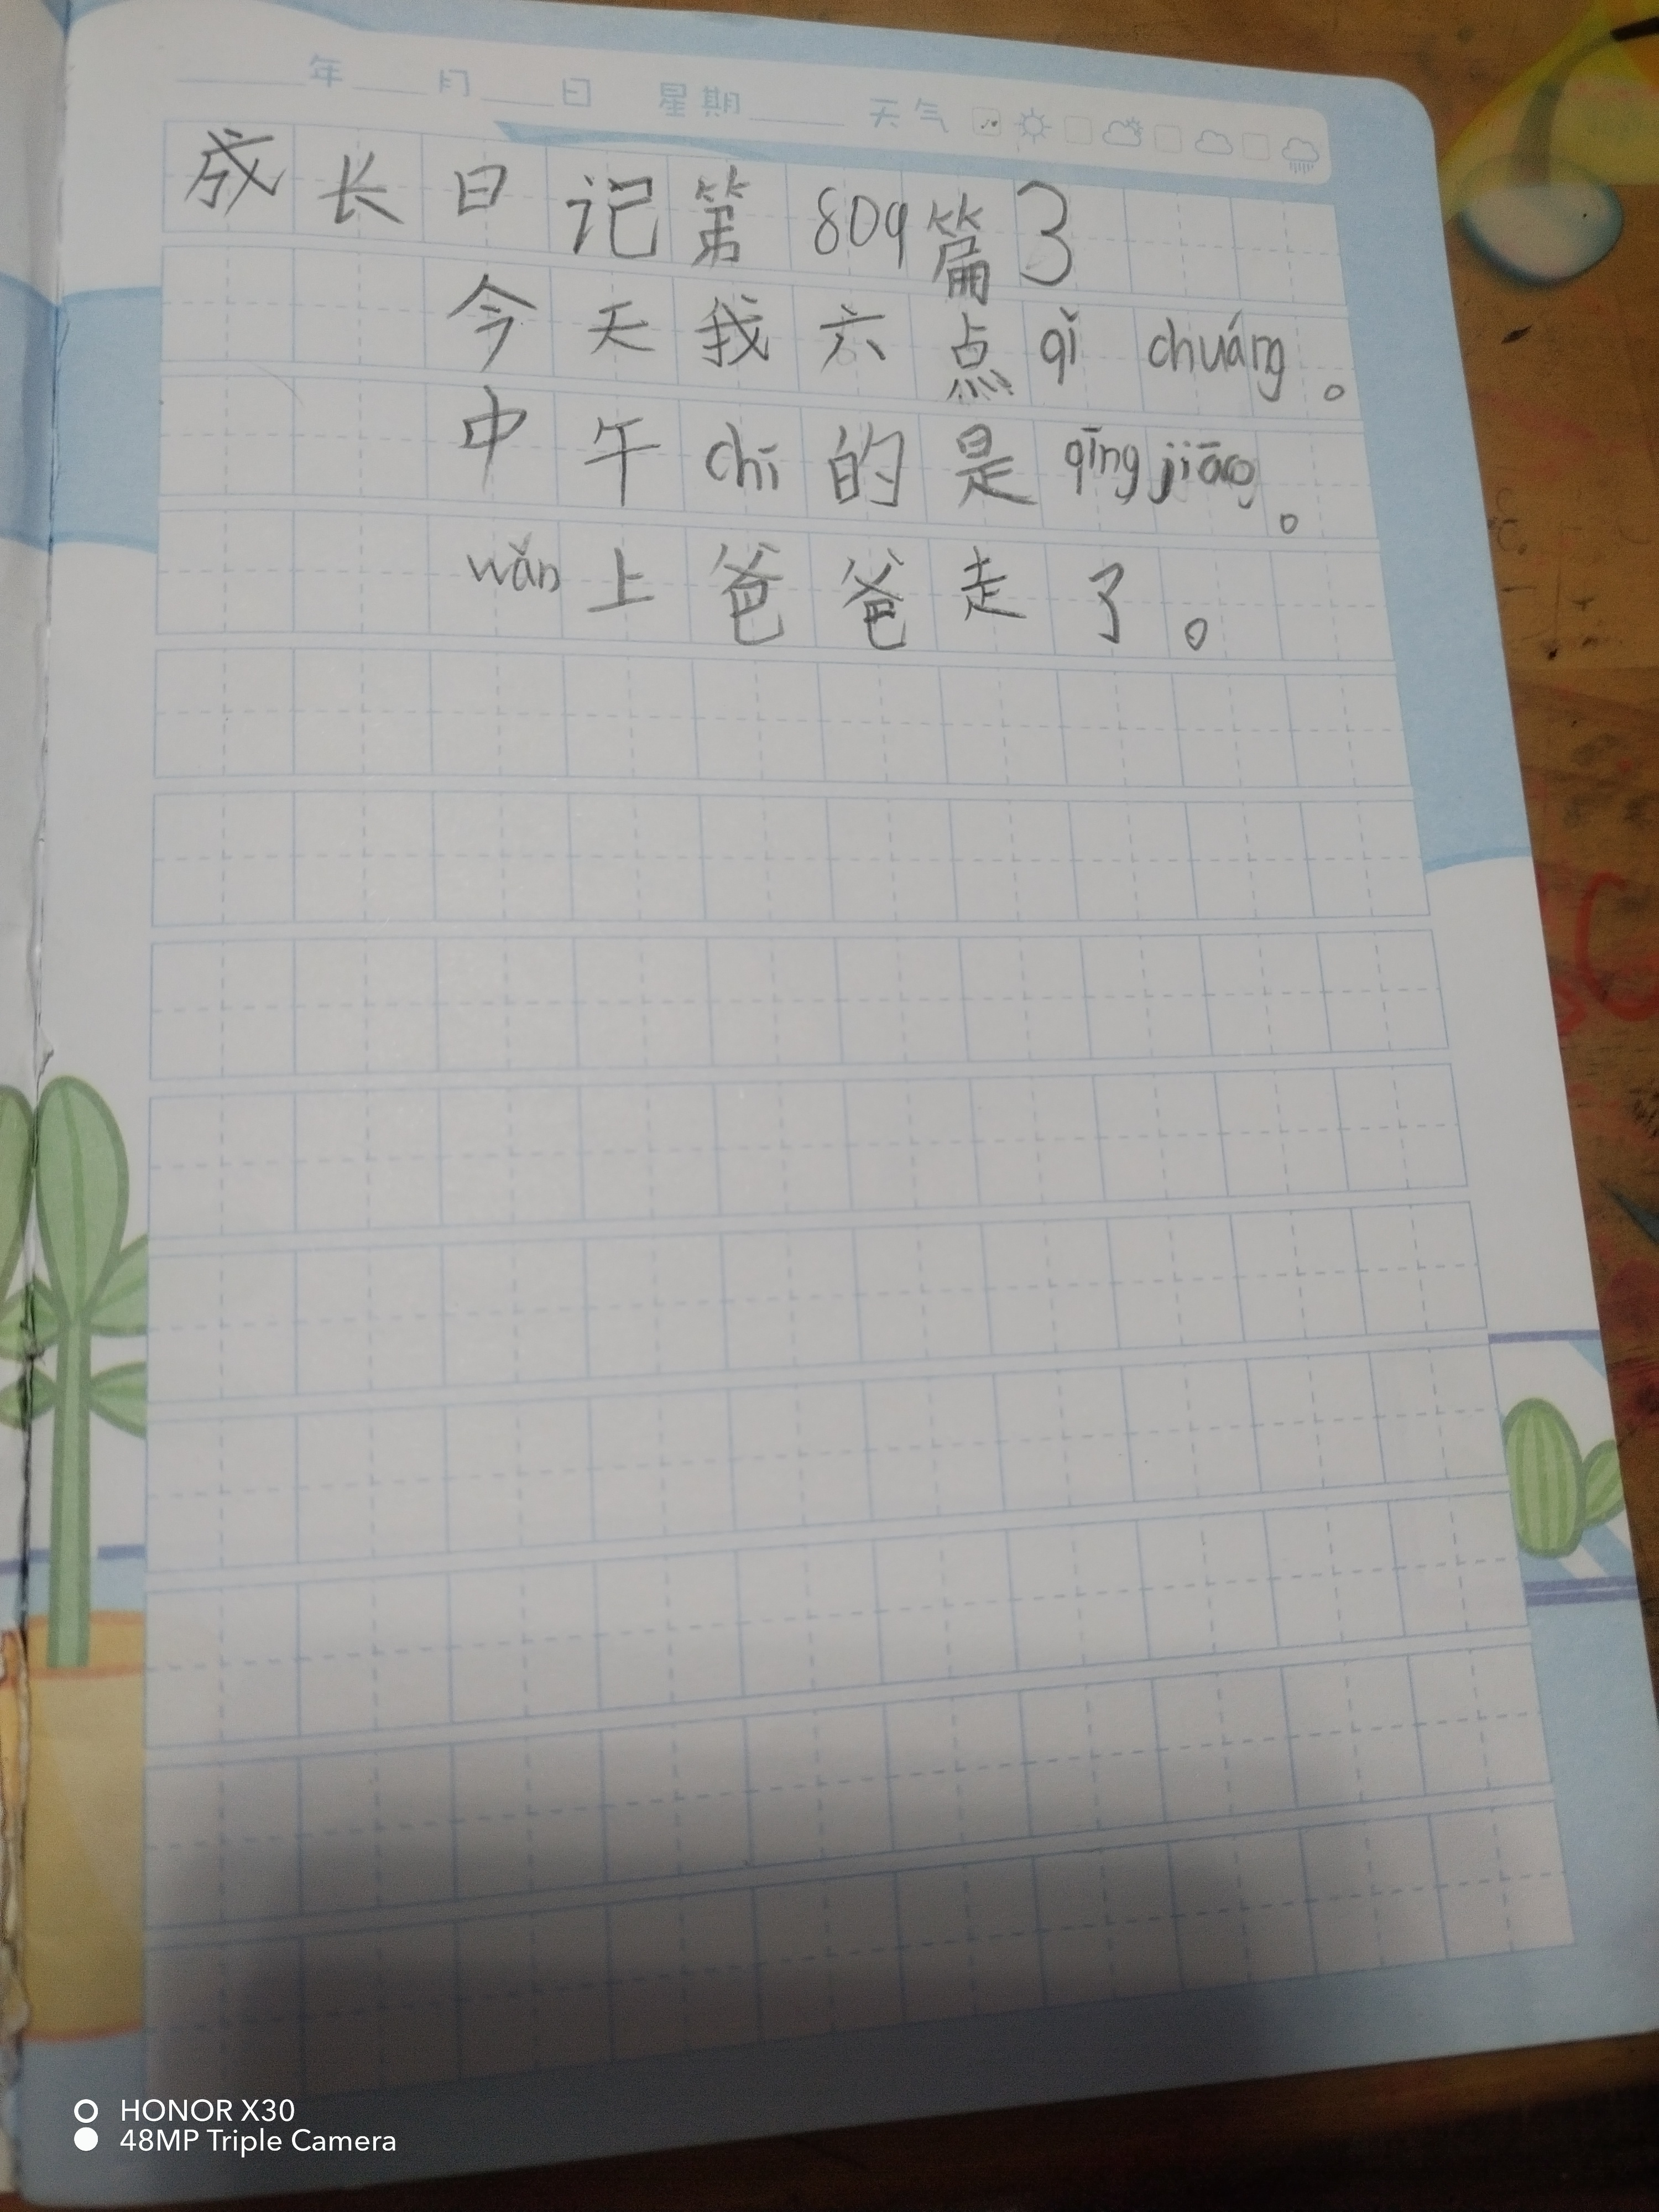 ____年___月___日 星期____ 天气
成长日记第809篇3
今天我六点qǐ chuáng。
中午chī的是qīng jiāo。
wǎn上爸爸走了。
HONOR X30
48MP Triple Camera